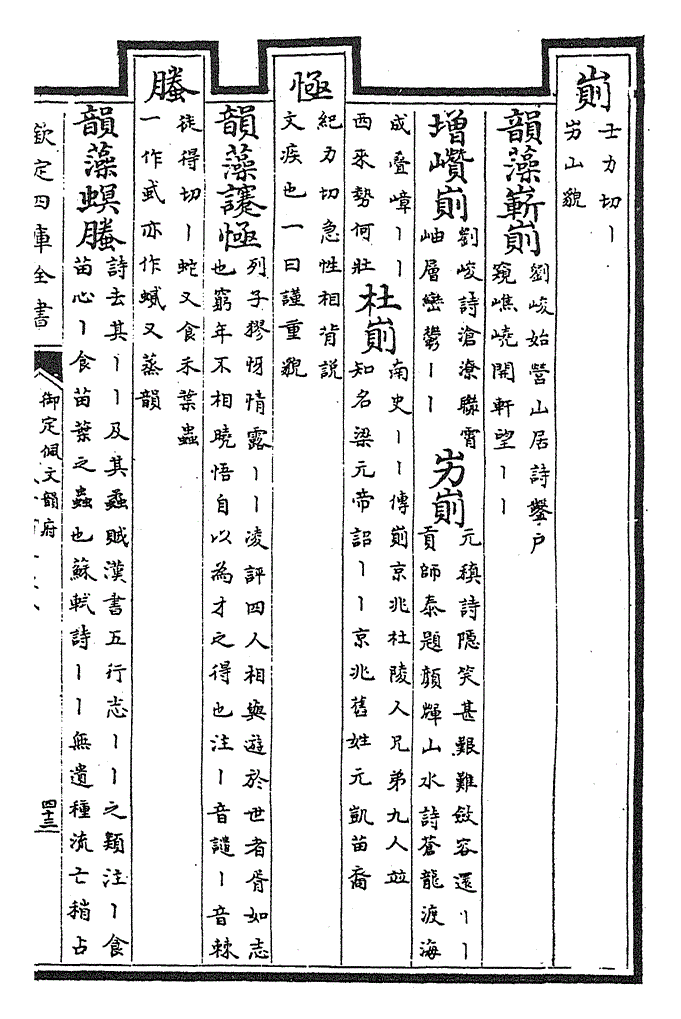 崱 士力切丨
屴山貌
韻藻嶄崱 劉峻始營山居詩鑿户
窺嶕嶢開軒望丨丨
增巑崱 劉峻詩滄潦聯霄
岫層巒鬱丨丨
屴崱 元稹詩隠笑甚艱難斂容還丨丨
貢師泰題顔輝山水詩蒼龍渡海
成疊嶂丨丨
西來勢何壯
杜崱 南史丨丨傳崱京兆杜陵人兄弟九人竝
知名梁元帝詔丨丨京兆舊姓元凱苗裔
極 紀力切急性相背説
文疾也一曰謹重貌
韻藻䜐極 列子㺒㤉情露丨丨凌誶四人相與遊於世者胥如志
也窮年不相曉悟自以為才之得也注丨音讉丨音棘
螣 徒得切丨蛇又食禾葉蟲
一作䘊亦作蟘又蒸韻
韻藻螟螣 詩去其丨丨及其蟊賊漢書五行志丨丨之類注丨食
苗心丨食苗葉之蟲也蘇軾詩丨丨無遺種流亡稍占
欽定四庫全書
御定佩文韻府
四十三